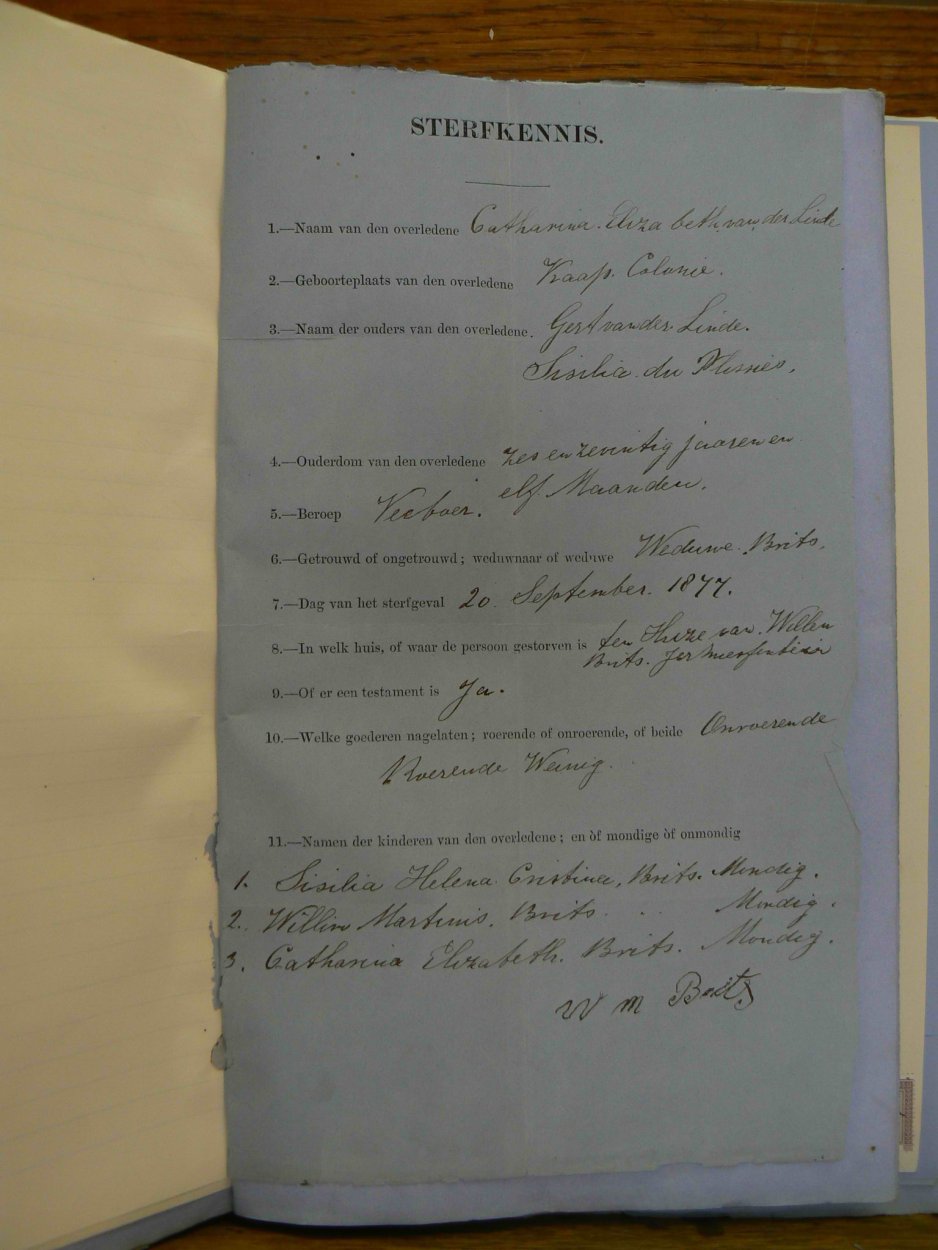 STERFKENNIS.
1.—Naam van den overledene Catharina. Eliza beth. van der Linde
2.—Geboorteplaats van den overledene Kaap. Colonie.
3.—Naam der ouders van den overledene. Gert van der Linde.
Sisilia du Plesies.
4.—Ouderdom van den overledene zes en zevintig jaaren en
elf Maanden.
5.—Beroep Veeboer.
6.—Getrouwd of ongetrouwd; weduwnaar of weduwe Weduwe. Brits.
7.—Dag van het sterfgeval 20. September. 1877.
8.—In welk huis, of waar de persoon gestorven is ten Huize van. Willem
Brits.
9.—Of er een testament is Ja.
10.—Welke goederen nagelaten; roerende of onroerende, of beide Onroerende
Roerende Weinig.
11.—Namen der kinderen van den overledene; en òf mondige òf onmondig
1. Sisilia Helena Cristina, Brits. Mondig.
2. Willim Martinis. Brits. Mondig.
3. Catharina Elizabeth. Brits. Mondig.
W M Brits